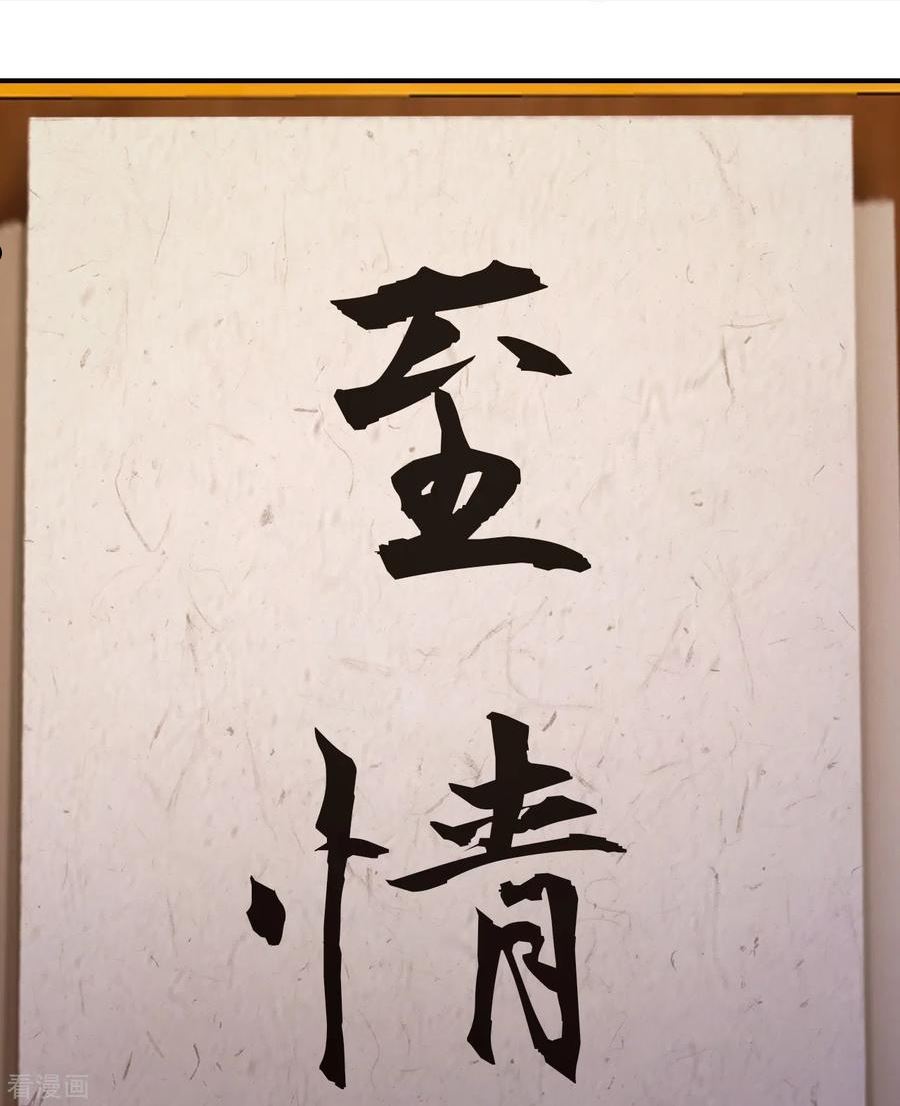 至情
看漫画